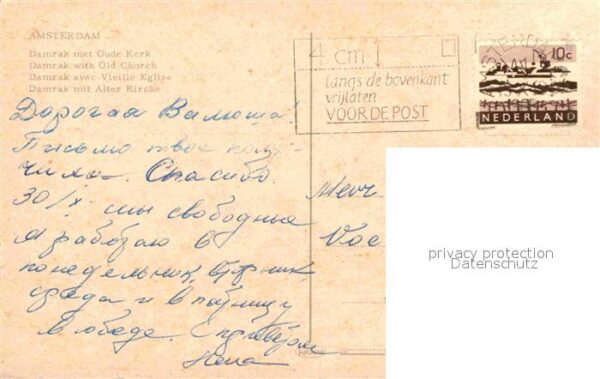 AMSTERDAM
Damrak met Oude Kerk
Damrak with Old Church
Damrak avec Vieille Eglise
Damrak mit Alter Kirche
Дорогая Валюша!
Письмо твое полу-
чили. Спасибо.
30/X мы свободные
Я работаю в
понедельник, вторник,
среда и в пятницу
в обеде. С приветом
4 cm
langs de bovenkant
vrijlaten
VOOR DE POST
10c
NEDERLAND
Mevr
Voe
privacy protection
Datenschutz